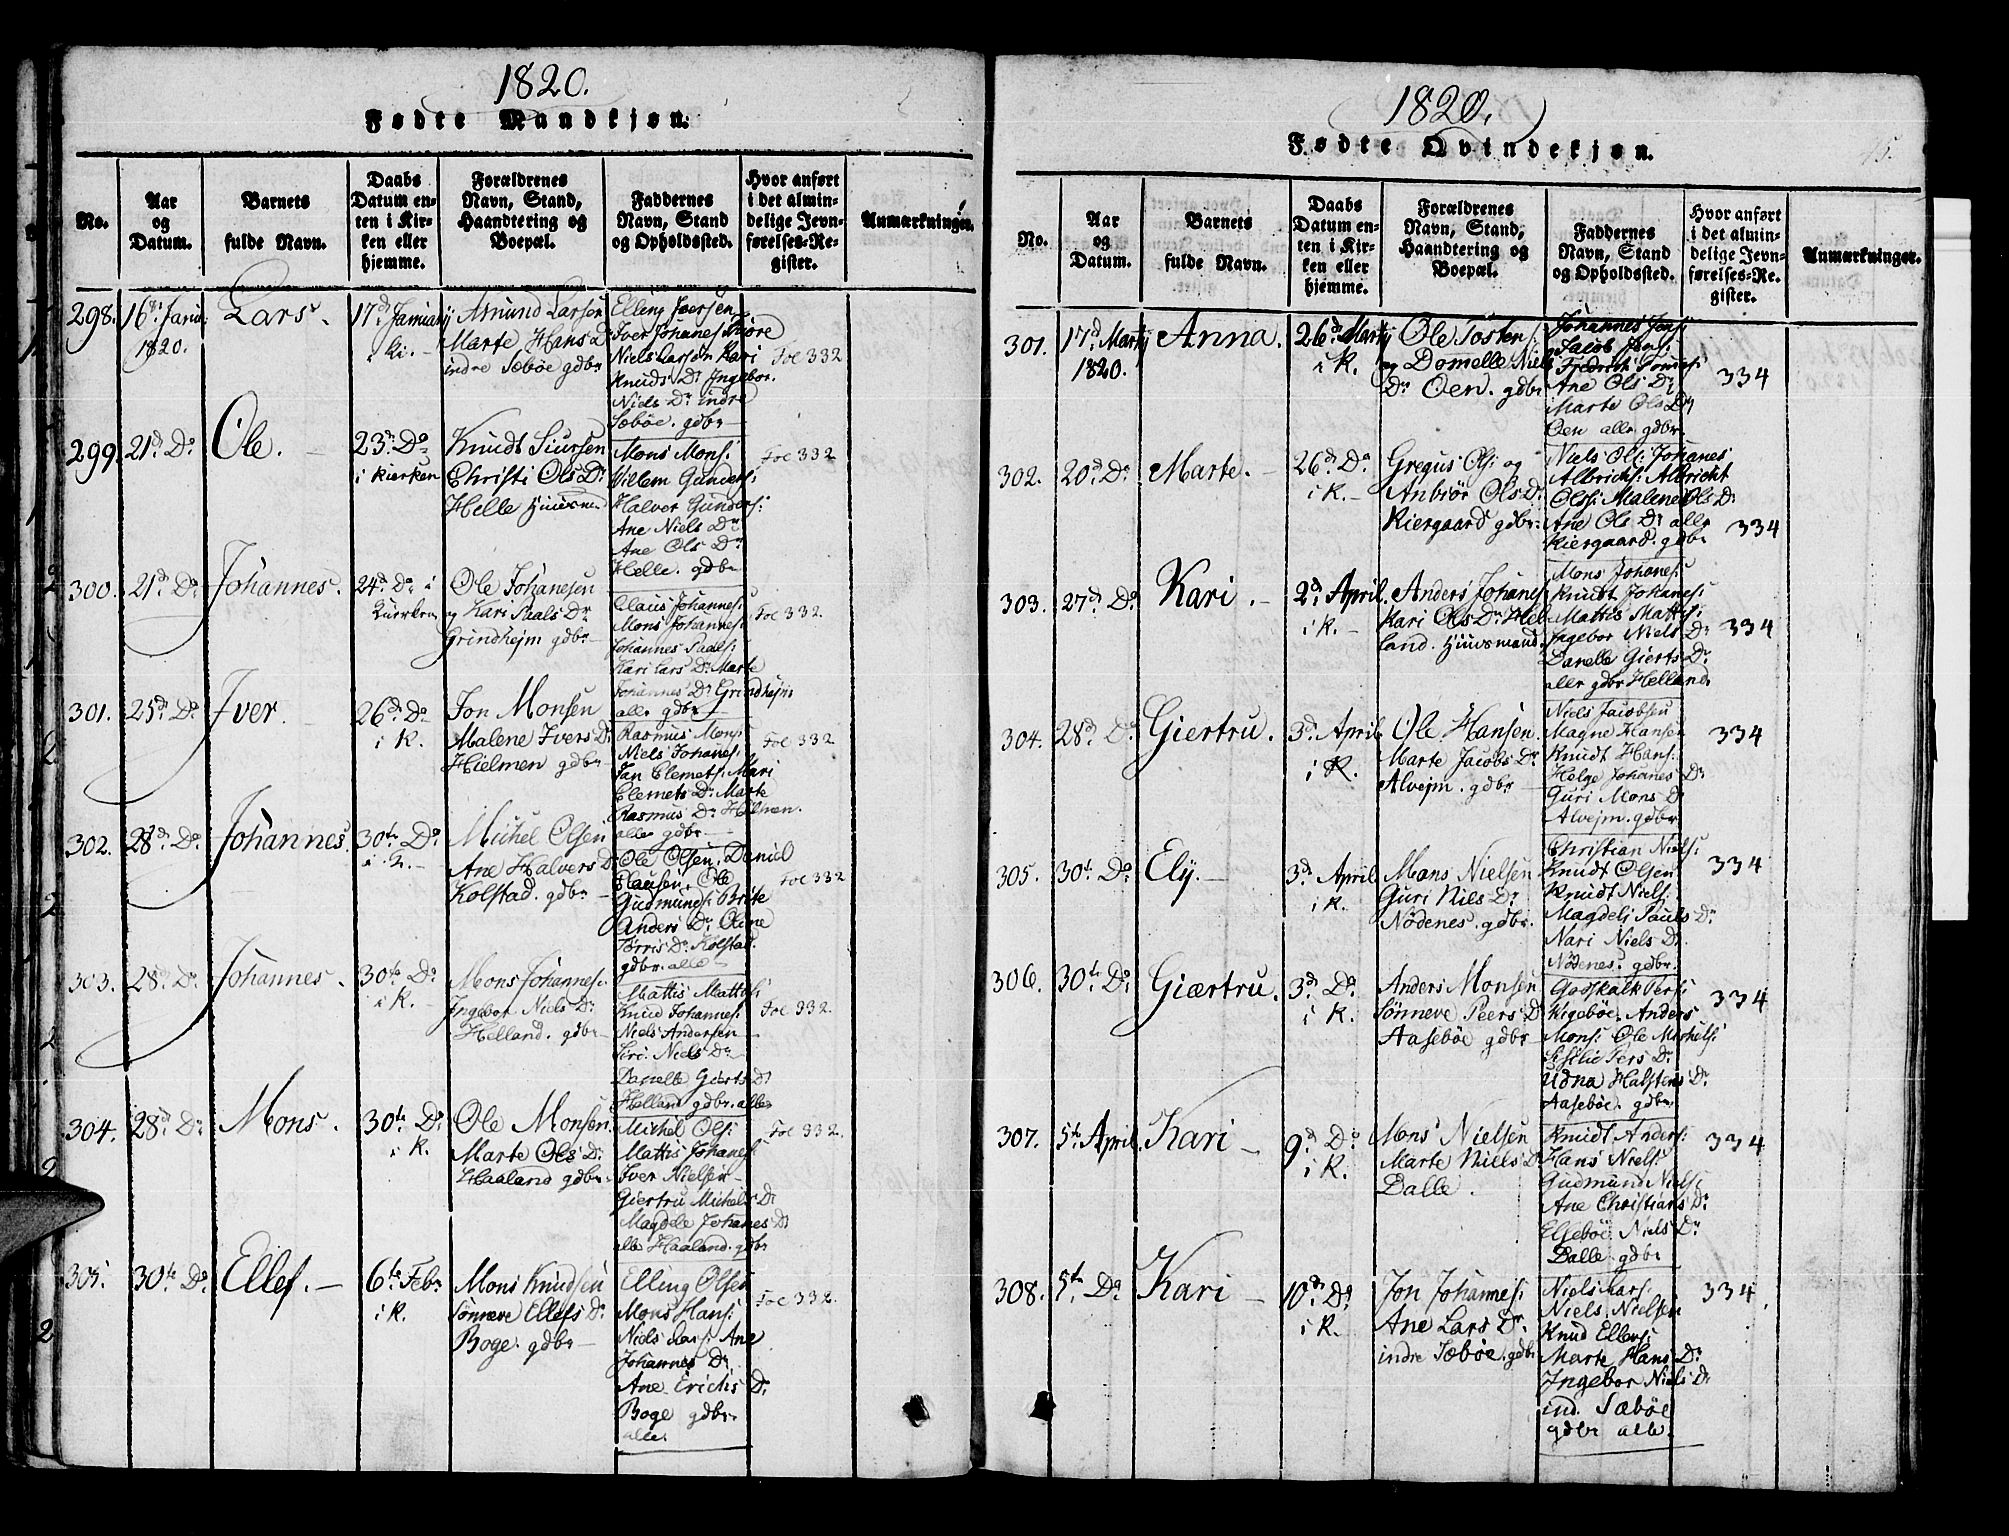 1820.
Fødte Mandkjøn.
No.
Aar
og
Datum.
Barnets
fulde Navn.
Daabs
Datum en-
ten i Kir-
ken eller
hjemme.
Forældrenes
Navn, Stand,
Haandtering og
Boepæl.
Faddernes
Navn, Stand
og Opholdssted.
Hvor anført
i det almin-
delige Jevn-
førelses-Re-
gister.
Anmærkninger.
298.
16d Januar
1820.
Lars.
17d Januarij
i Ki.
Amund Larsen
Marte Hans D.
indre Sæbøe gdbr
Elling Iversen
Iver Johanes Tiøre
Niels Larsen Kari
Knuds Dr Ingebor.
Niels Dr indre
Sæbøe. gdbr
Fol 332
299.
21d Do
Ole.
23d Do
i kierken
Knudt Siursen
Christi Ols D.
Helle Huusmand
Mons Mons:
Willem Gunders:
Halver Gunders:
Ane Niels Dr
Ane Ols Dr
Helle. gdbr
Fol 332
300.
21d Do
Johannes.
24d Do i
Kierken
Ole Johanesen
og Kari Paals Dr
Grindhejm gdbr
Claus Johannes:
Mons Johannes:
Johannes Paals:
Kari Lars Dr Marte
Johannes Dr Grindhejm
alle gdbr
Fol 332
301.
25d Do
Iver.
26d Do
i K.
Jon Monsen
Malene Ivers D.
Hielmen gdbr
Rasmus Mons:
Niels Johanes:
Jan Clemets: Mari
Clemets Dr Marte
Rasmus Dr Hielmen.
alle gdbr
Fol 332
302.
28d Do
Johannes.
30te Do
i K.
Michel Olsen
Ane Halvers D
Kolstad. gdbr
Ole Olsen, Daniel
Clausen, Ole
Gudmunds: Brite
Anders Dr
Torris Dr Kolstad.
gdbr. alle
Fol 332
303.
28d Do
Johannes.
30te Do
i K.
Mons Johannes:
Ingebor Niels D:
Helland. gdbr
Mattis Mattis:
Knud Johannes:
Niels Andersen
Siri Niels Dr
Danelle Gierts D:
Helland gdbr. alle
Fol 332
304.
28d Do
Mons.
30te Do
i K.
Ole Monsen
Marte Ols D:
Haaland gdbr.
Michel Ols:
Mattis Johanes:
Iver Nielsen
Giertru Michels D:
Magdele Johanes D:
alle Haaland. gdbr
Fol 332.
305.
30te Do
Ellef.
6te Febr
i K.
Mons Knudsen
Sønneve Ellefs D:
Boge. gdbr
Elling Olsen
Mons Hans:
Niels Lars: Ane
Johannes Dr
Ane Erichs D:
Boge gdbr.
alle.
Fol 332.
1820.
15.
Fødte Qvindekjøn.
No.
Aar
og
Datum.
Barnets
fulde Navn.
Daabs
Datum en-
ten i Kir-
ken eller
hjemme.
Forældrenes
Navn, Stand,
Haandtering og
Boepæl.
Faddernes
Navn, Stand
og Opholdssted.
Hvor anført
i det almin-
delige Jevn-
førelses-Re-
gister.
Anmærkninger.
301.
17d Martij
1820.
Anna.
26d Martij
i K.
Ole Tosten:
og Domelle Niels
Dr Øen. gdbr
Johannes Jons:
Jacob Jens:
Fredrik
Ane Ols Dr
Marte Ols Dr
Øen alle gdbr.
334
302.
20d Do
Marte.
26d Do
i K.
Gregus Ols: og
Anbiør Ols D:
Kiergaard gdbr.
Niels Ols: Johanes
Albrichs: Albricht
Ols: Malene Ols D:
Ane Ols Dr alle
Kiergaard. gdbr
334
303.
27d Do
Kari.
2d April.
i K.
Anders Johanes:
Kari Ols Dr Hel
land. Huusmand.
Mons Johanes:
Knudt Johanes:
Mattis Mattis:
Ingebor Niels D:
Danelle Gierts Dr
alle gdbr Helland.
334
304.
28d Do
Giertru.
3d April.
i K.
Ole Hansen
Marte Jacobs Dr
Alvejm. gdbr
Niels Jacobsen
Magne Hansen
Knudt Hans:
Helge Johanes D:
Guri Mons D
Alvejm. gdbr
334
305.
30te Do
Ely.
3d April.
i K.
Mons Nielsen
Guri Nils Dr
Nödenes. gdbr.
Christian Niels:
Knudt Olsen
Knudt Niels:
Magdeli Pauls D:
Nari Niels Dr
Nödenes. gdbr.
334
306.
30te Do
Giærtru.
3d Do
i K.
Anders Monsen
Sönneve Peers D
Aasebøe gdbr
Godskalk Pers:
Kigebøe. Anders
Mons: Ole Michels:
Pers Dr
Udna Halstens D:
Aasebøe. gdbr.
334
307.
5te April.
Kari
9d Do
i K.
Mons Nielsen
Marte Niels D
Dalle.
Knudt Anders:
Hans Niels:
Gudmund Niels:
Ane Christians D:
Elsebøe Niels Dr
Dalle gdbr
334
308.
5te Do
Kari
10d Do
i K.
Jon Johannes:
Ane Lars Dr
indre Sæbøe. gdbr
Niels Lars:
Niels Nielsen
Knud Ellens:
Marte Hans Dr
Ingebor Niels D:
ind. Sæbøe
gdbr alle.
334.